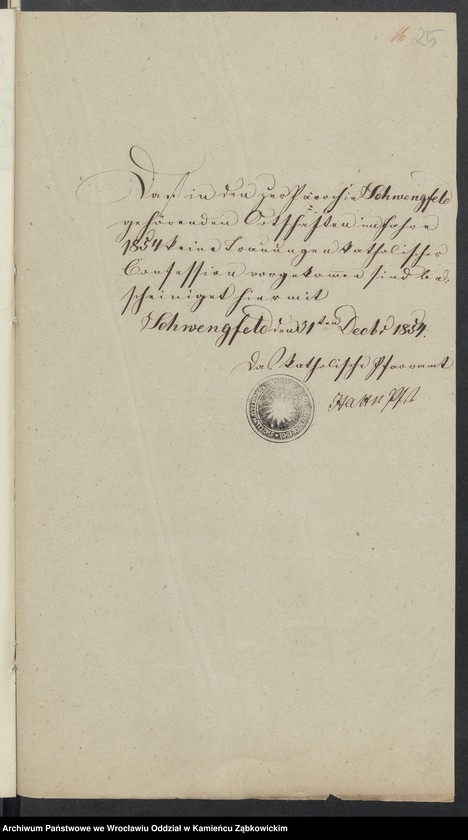 25
Das in den zur Parochie Schwengfeld
gehörenden Ortschaften im Jahre
1854 keine Trauungen katholischer
Confession vorgekomen sind be-
scheiniget hiermit
Schwengfeld den 31ten Decbr 1854.
Das katholische Pfarramt
Hahn Pfr
Archiwum Państwowe we Wrocławiu Oddział w Kamieńcu Ząbkowickim